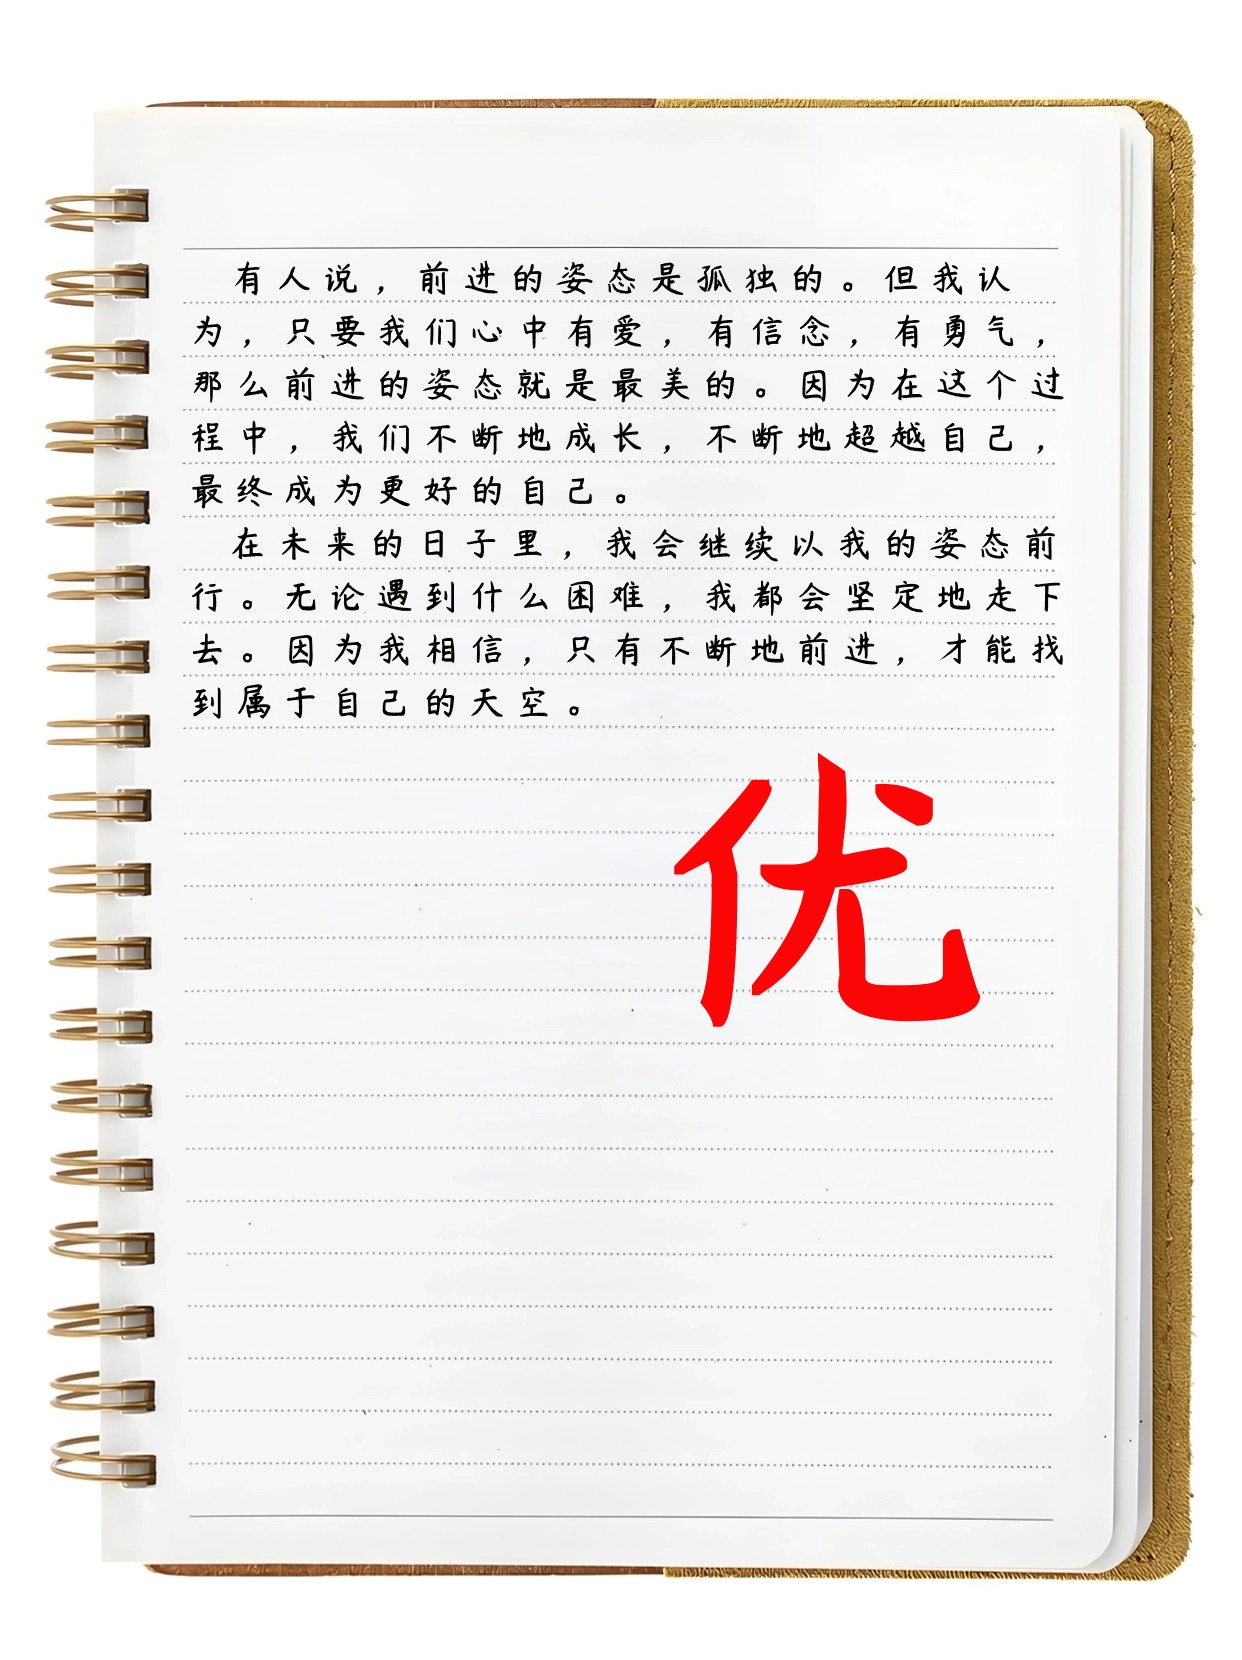 有人说，前进的姿态是孤独的。但我认
为，只要我们心中有爱，有信念，有勇气，
那么前进的姿态就是最美的。因为在这个过
程中，我们不断地成长，不断地超越自己，
最终成为更好的自己。
在未来的日子里，我会继续以我的姿态前
行。无论遇到什么困难，我都会坚定地走下
去。因为我相信，只有不断地前进，才能找
到属于自己的天空。
优